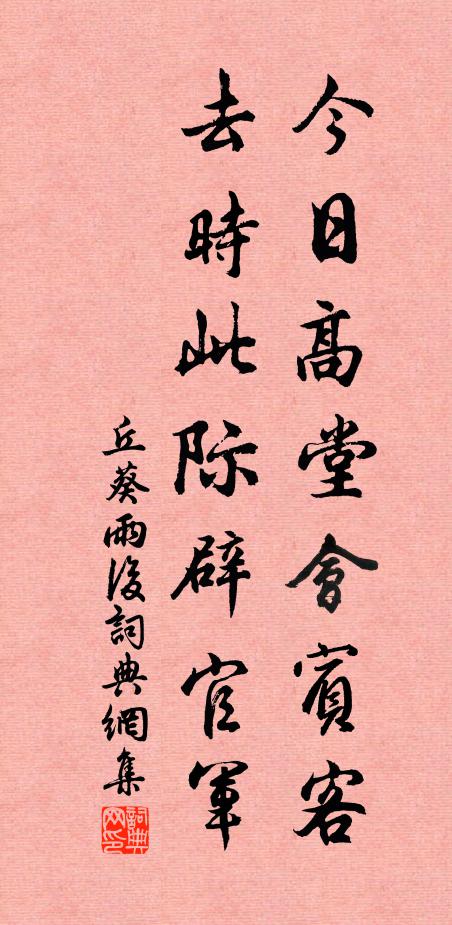 今日高堂會賓客
去時此际辟官軍
丘葵雨後詞典網集
詞典网印